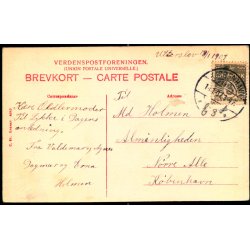 Utterslev 19/1 1907
VERDENSPOSTFORENINGEN.
(UNION POSTALE UNIVERSELLE)
BREVKORT — CARTE POSTALE
Correspondance
Adresse
Kære Oldemoder
Til Lykke i Dagens
Anledning.
Fra Valdemar
Dagmar og Erna
Holmen
Til
Md Holmen
Almindeligheden
Nørre Allé
København